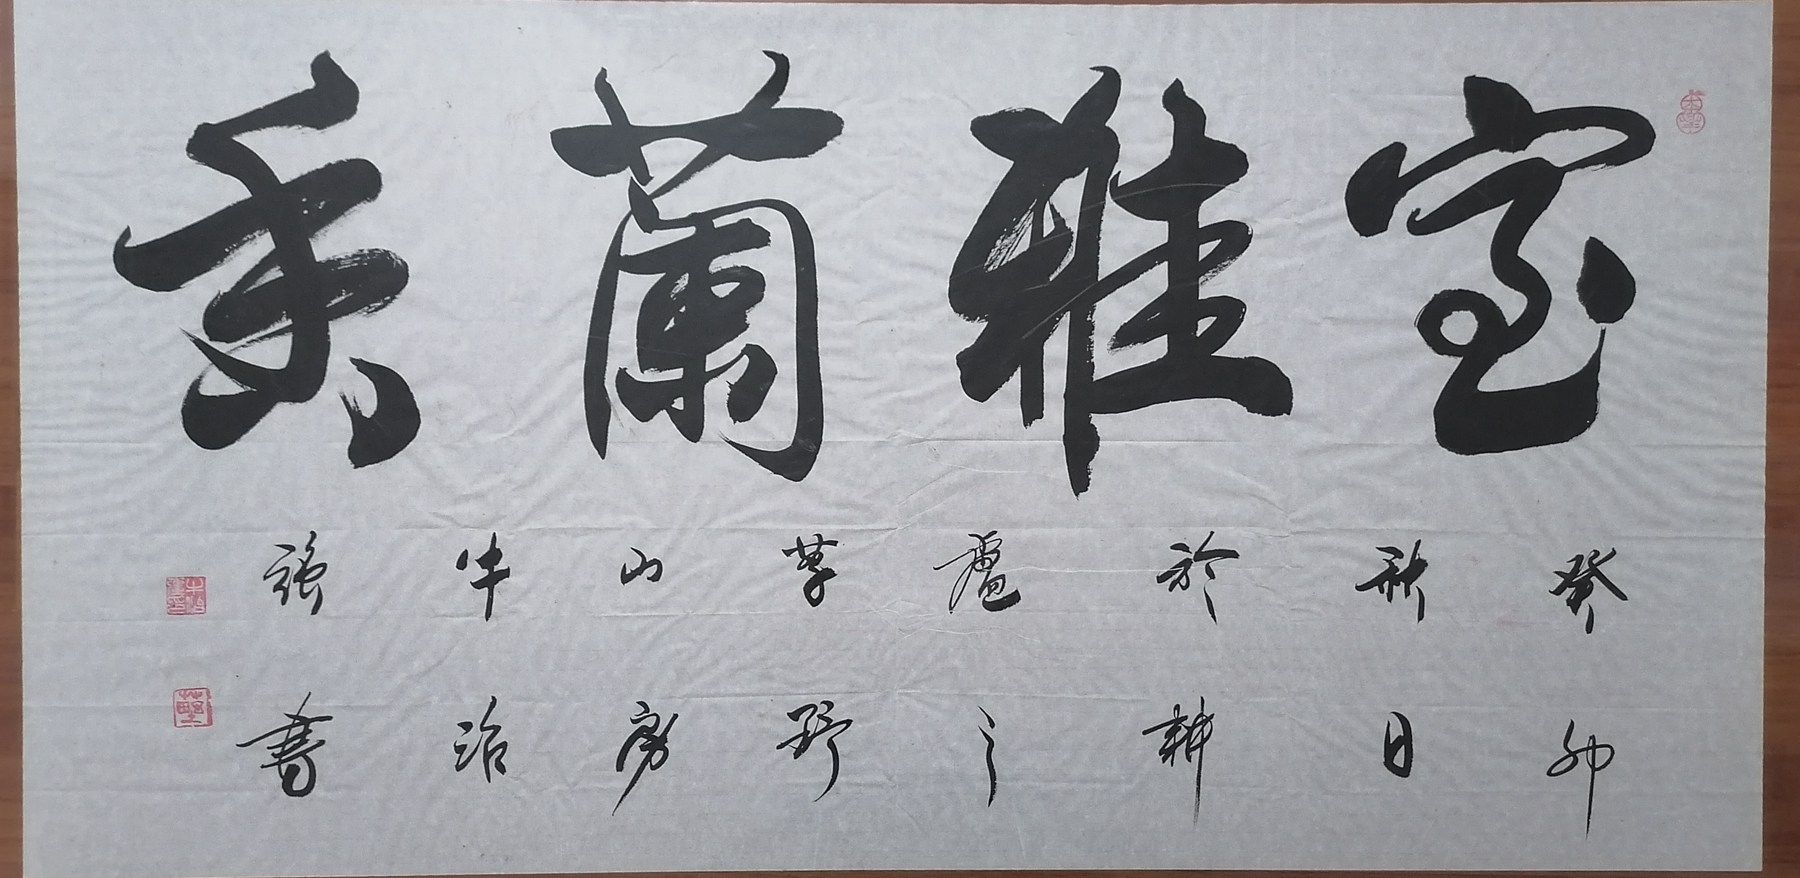 室雅蘭香
癸卯
秋日
於耕
廬之
草野
山房
牛治
強書